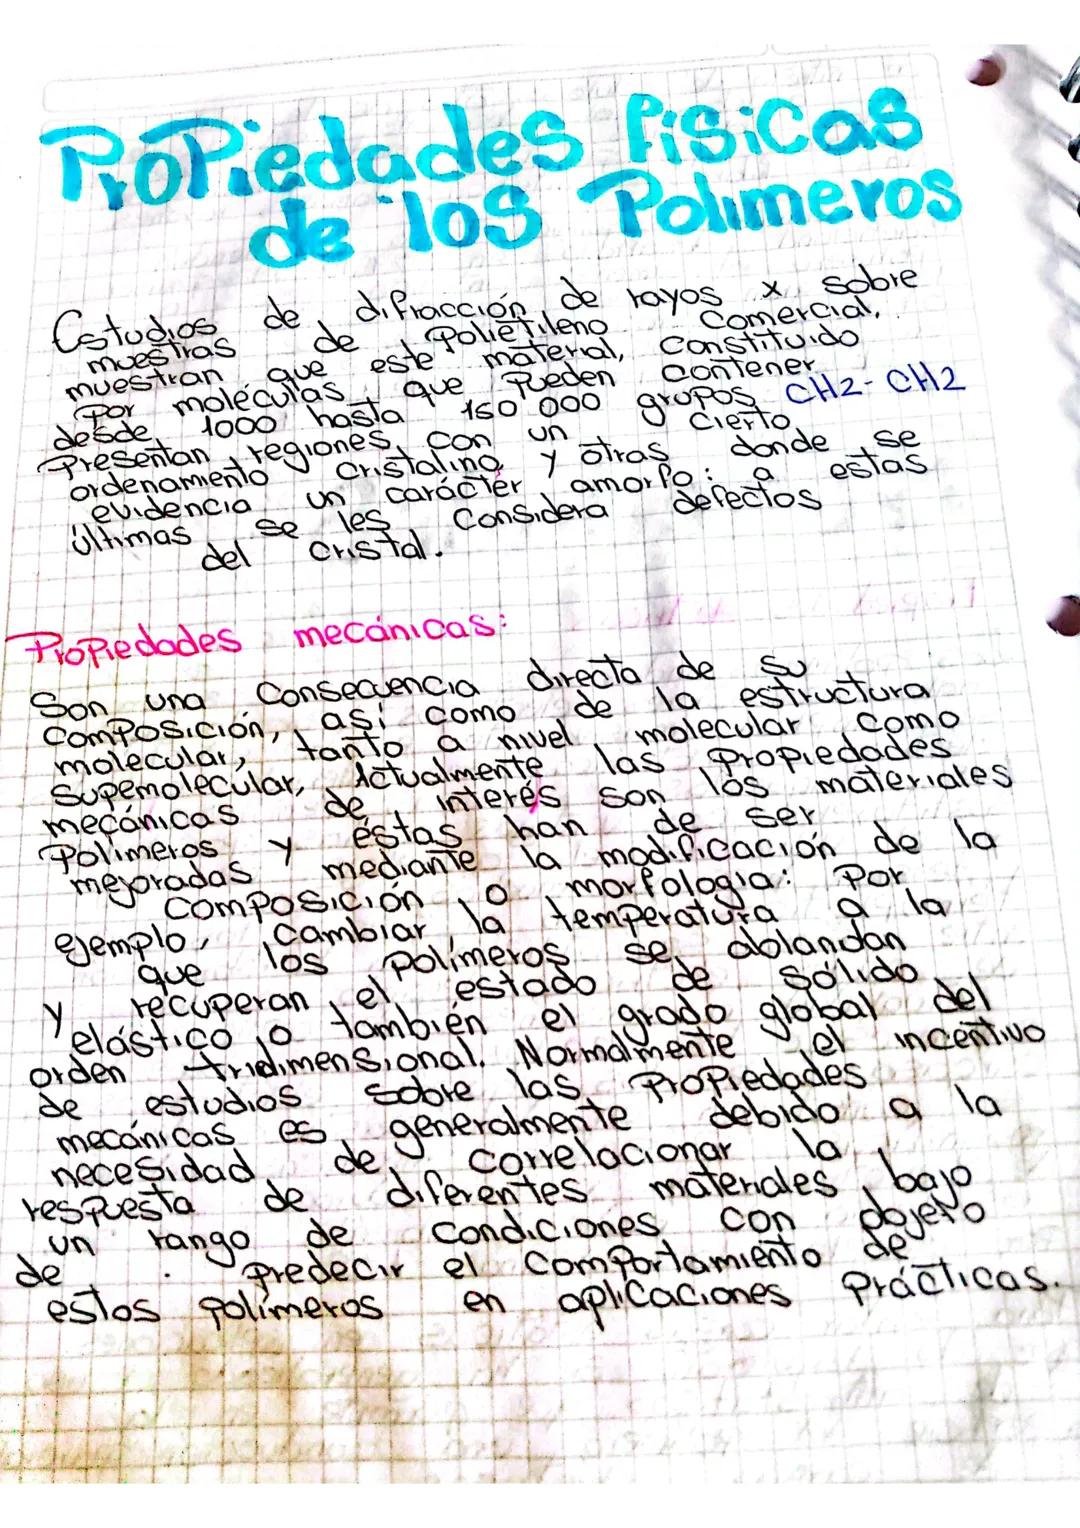 Propiedades físicas
de los Polimeros
Estudios de difracción de rayos x sobre
muestras de Polietileno comercial,
muestran que este material, constituido
Por moléculas que Pueden contener
desde 1000 hasta 150 000 grupos CH2-CH2
Presentan regiones con un cierto
ordenamiento cristalino y otras donde se
evidencia un carácter amorfo: a estas
últimas se les considera defectos
del cristal.
Propiedades mecánicas:
Son una consecuencia directa de su
composición, así como de la estructura
molecular, tanto a nivel molecular como
supemolecúlar, Actualmente las Propiedades
mecánicas de interés son los materiales
Polimeros y éstas han de ser
mejoradas mediante la modificación de la
composición o morfologia: Por
ejemplo, cambiar la temperatura a la
que los Polímeros se ablandan
y recuperan el estado de sólido
elástico o también el grado global del
orden tridimensional. Normalmente el incentivo
de estudios sobre las Propiedades
mecánicas es generalmente debido a la
necesidad de correlacionar la
respuesta de diferentes materiales bajo
un rango de condiciones con objeto
de predecir el comportamiento de
estos polímeros en aplicaciones Prácticas.